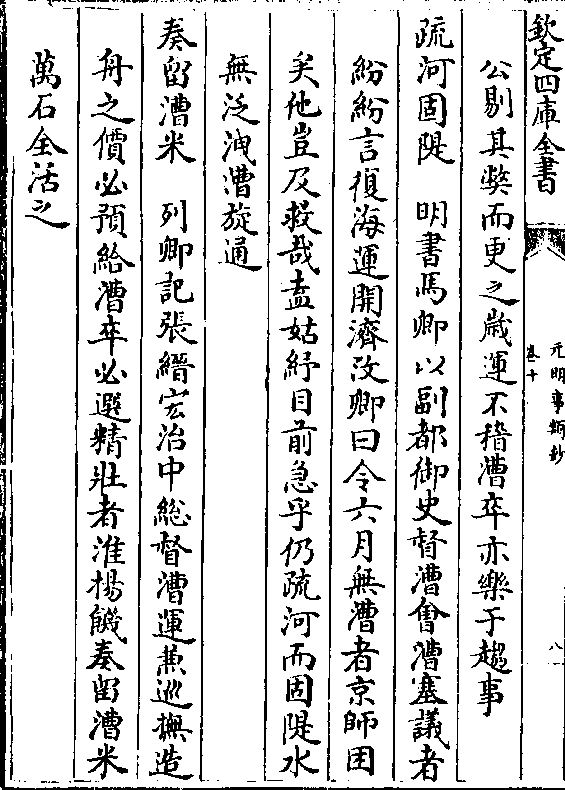 欽定四庫全書
元明事類鈔
卷十
八
公剔其弊而更之歲運不稽漕卒亦樂于趨事
疏河固隄　明書馬卿以副都御史督漕會漕塞議者
紛紛言復海運開濟汶卿曰令六月無漕者京師困
矣他豈及救哉盍姑紓目前急乎仍疏河而固隄水
無泛洩漕旋通
奏留漕米　列卿記張縉宏治中總督漕運兼巡撫造
舟之價必預給漕卒必選精壯者淮楊饑奏留漕米
萬石全活之